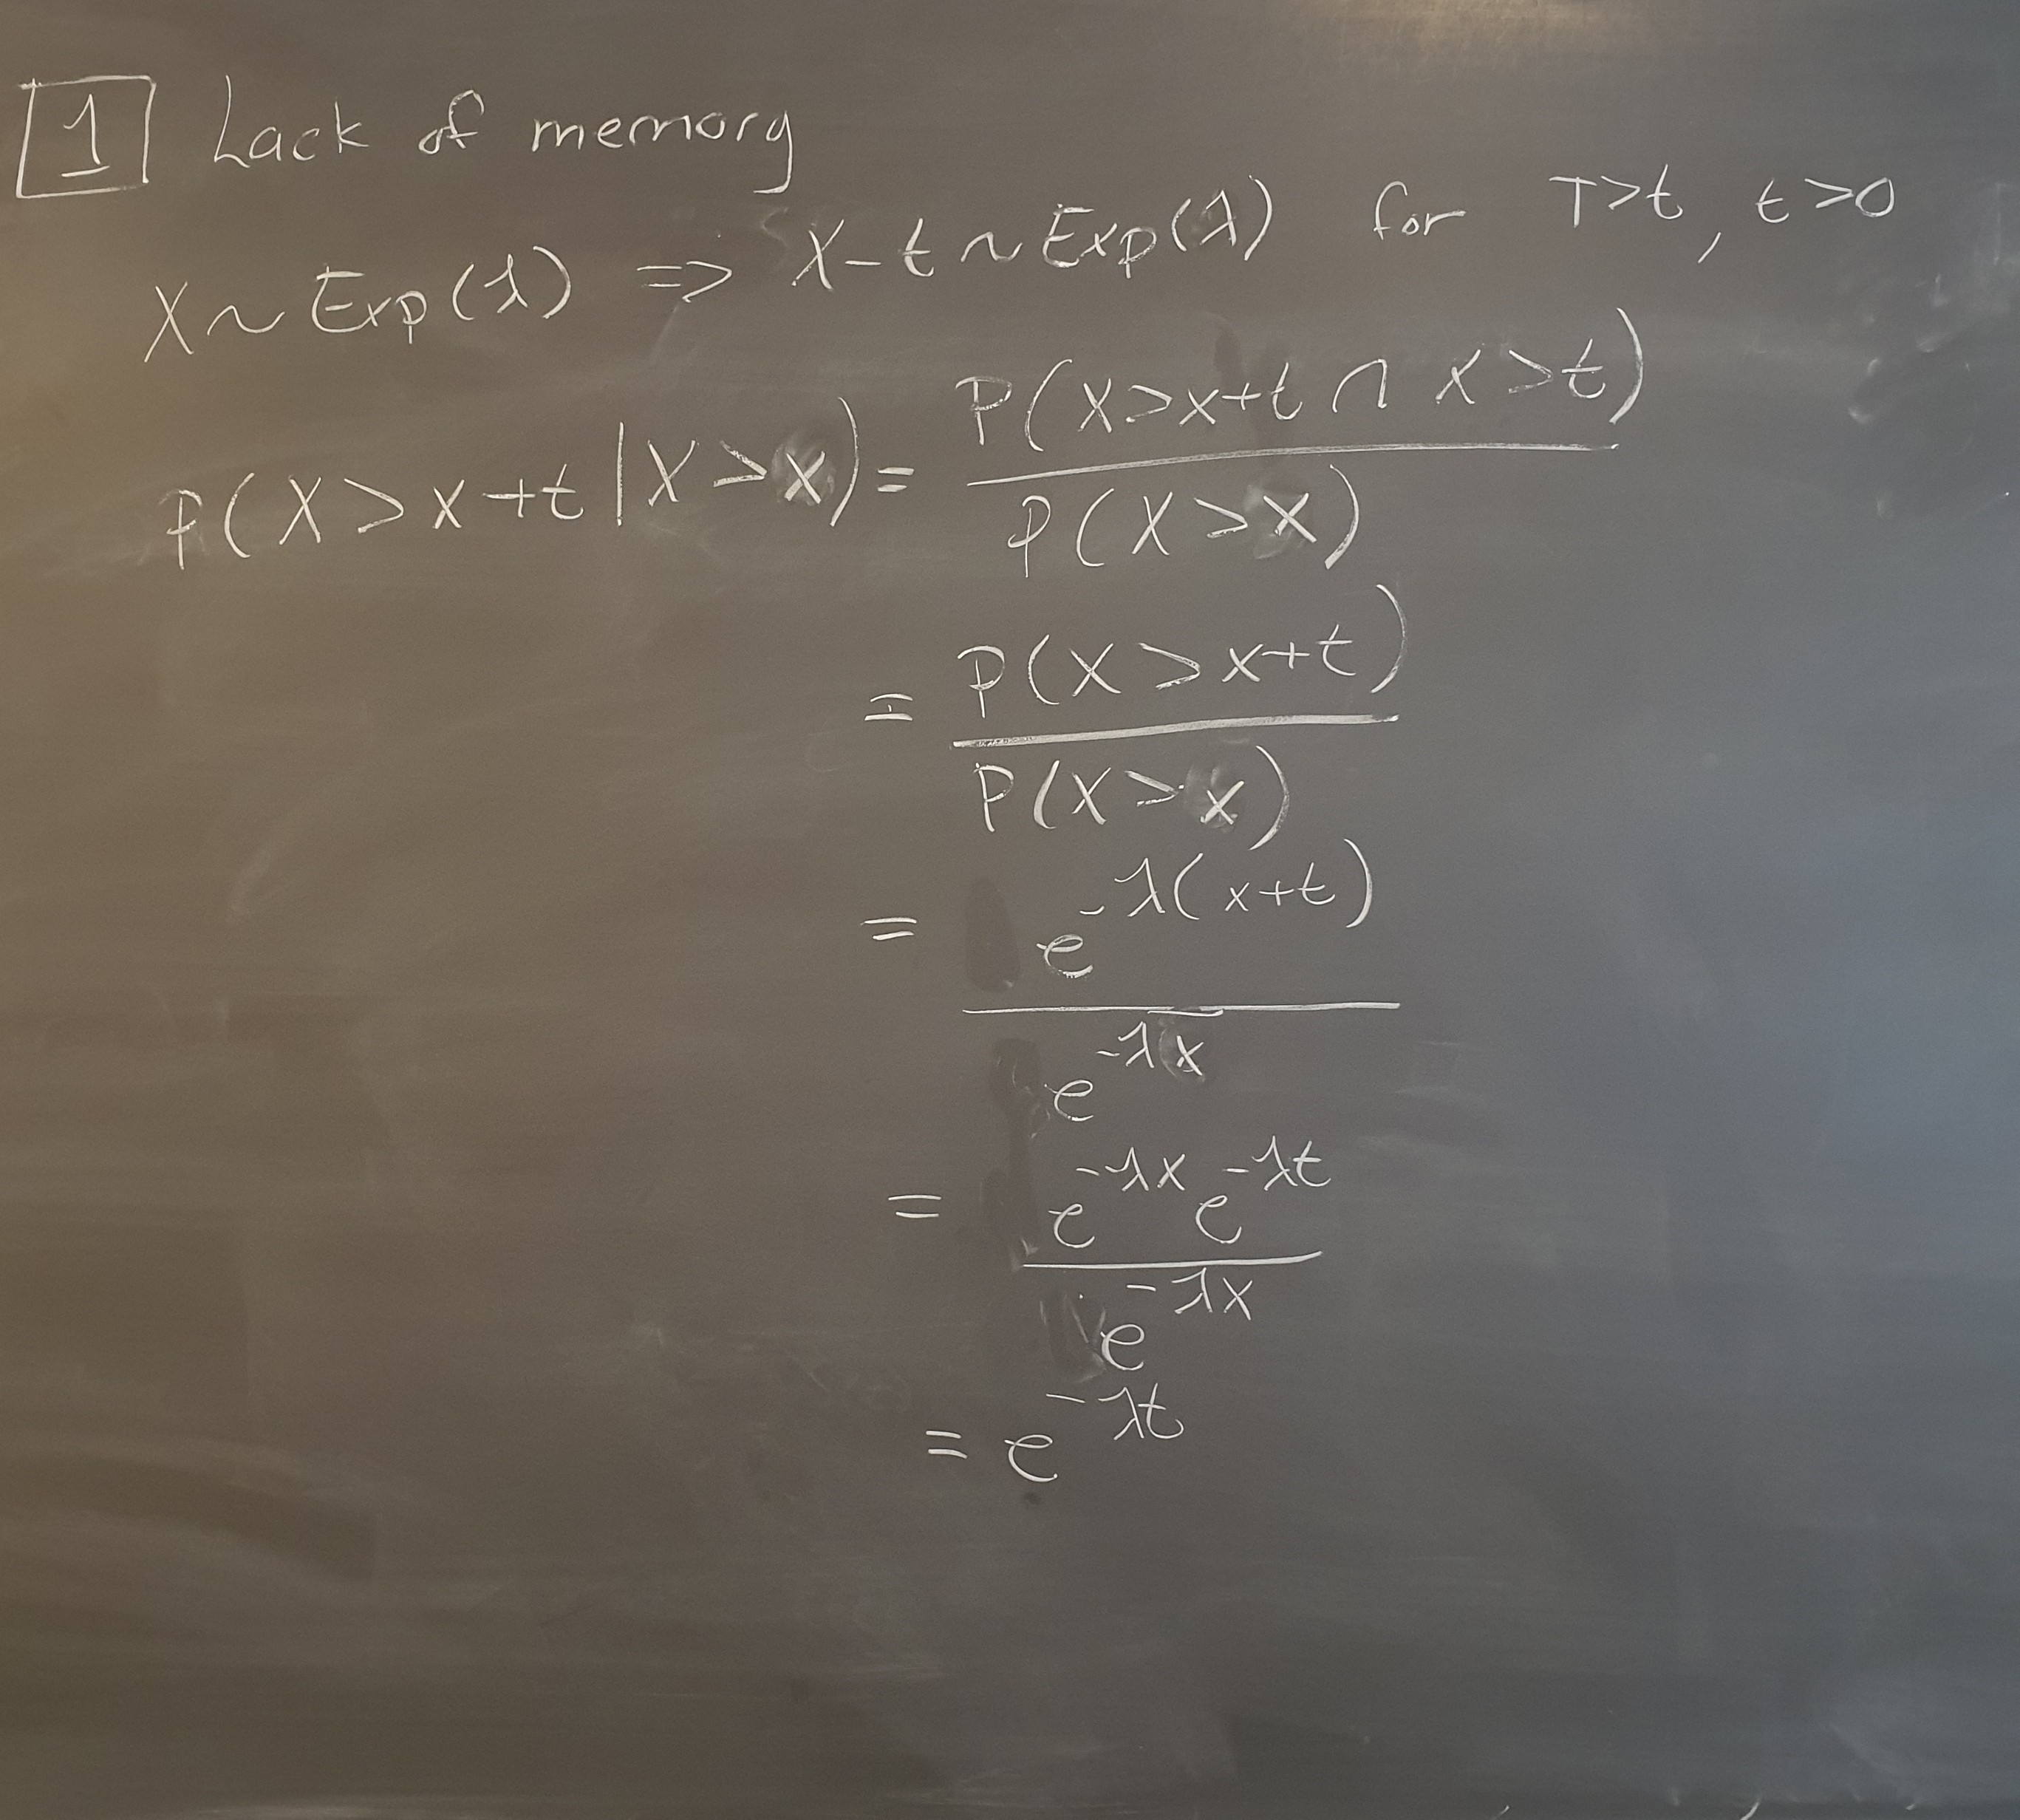 1 Lack of memory
X ~ Exp(λ) => X-t ~ Exp(λ) for T>t, t>0
P(X>x+t|X>x) = P(X>x+t ∩ X>t)
P(X>x)
= P(X>x+t)
P(X>x)
= e^-λ(x+t)
e^-λx
= e^-λx e^-λt
e^-λx
= e^-λt